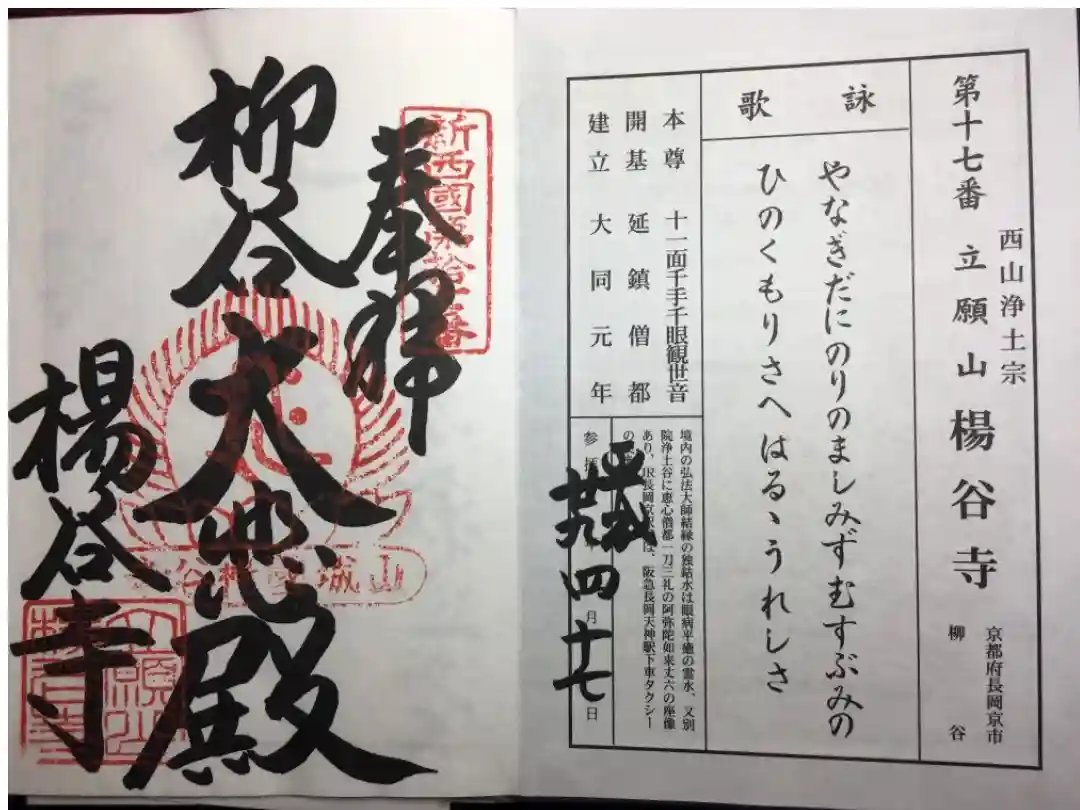 第十七番 立願山 楊谷寺
西山浄土宗
京都府長岡京市
柳谷
詠歌
やなぎだにのりのましみずむすぶみの
ひのくもりさへはるゝうれしさ
本尊 十一面千手千眼観世音
開基 延鎮僧都
建立 大同元年
境内の弘法大師結縁の独鈷水は眼病平癒の霊水、又別
院浄土谷に恵心僧都一刀三礼の阿弥陀如来丈六の座像
あり。JR長岡京駅 は、阪急長岡天神駅下車タクシー
の
参拝
四月十七日
新西國第拾七番
奉拝
柳谷
大悲殿
楊谷寺
山城